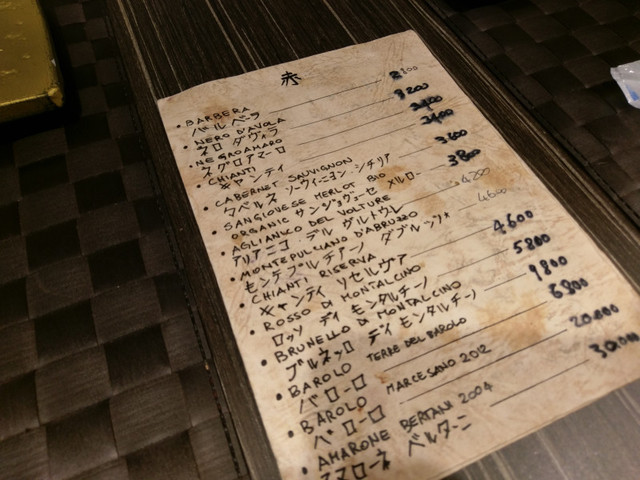 赤
• BARBERA 2800
バルベラ
• NERO D'AVOLA 3200
ネロ ダヴォラ
• NEGROAMARO 3400
ネグロアマーロ
• CHIANTI 3400
キャンティ
• CABERNET SAUVIGNON 3600
カベルネ ソーヴィニヨン・シチリア
• SANGIOVESE MERLOT BIO 3800
ORGANIC サンジョヴェーゼ メルロー
• AGLIANICO DEL VOLTURE 4200
アリアニコ・デル ヴルトゥレ
• MONTEPULCIANO D'ABRUZZO 4600
モンテプルチアーノ ダブルッツォ
• CHIANTI RISERVA 4600
キャンティ リセルヴァ
• ROSSO DI MONTALCINO 5800
ロッソ ディ モンタルチーノ
• BRUNELLO DI MONTALCINO 9800
ブルネッロ ディ モンタルチーノ
• BAROLO TERRE DEL BAROLO 6800
バローロ
• BAROLO MARCESANO 2012 20.000
バローロ
• AMARONE BERTANI 2004 30.000
アマローネ ベルターニ